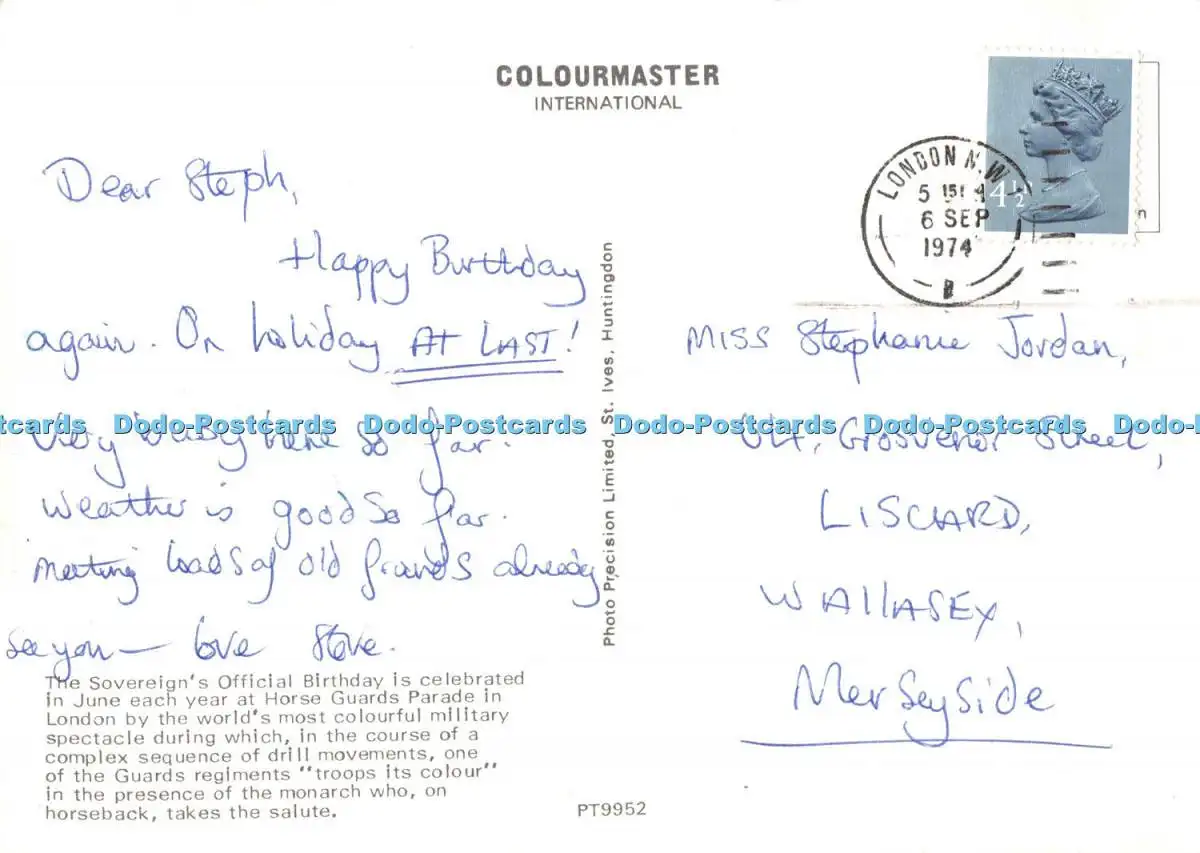 COLOURMASTER
INTERNATIONAL
Dear Steph,
Happy Birthday
again. On holiday AT LAST!
Very busy here so far.
Weather is good so far.
Meeting loads of old friends already
see you — love Steve.
The Sovereign's Official Birthday is celebrated
in June each year at Horse Guards Parade in
London by the world's most colourful military
spectacle during which, in the course of a
complex sequence of drill movements, one
of the Guards regiments "troops its colour"
in the presence of the monarch who, on
horseback, takes the salute.
Photo Precision Limited, St. Ives, Huntingdon
PT9952
LONDON N.W.1
6 SEP
1974
4½P
Miss Stephanie Jordan,
Grosvenor Street,
LISCARD,
WALLASEY,
Merseyside
Dodo-Postcards Dodo-Postcards Dodo-Postcards Dodo-Postcards Dodo-Postcards